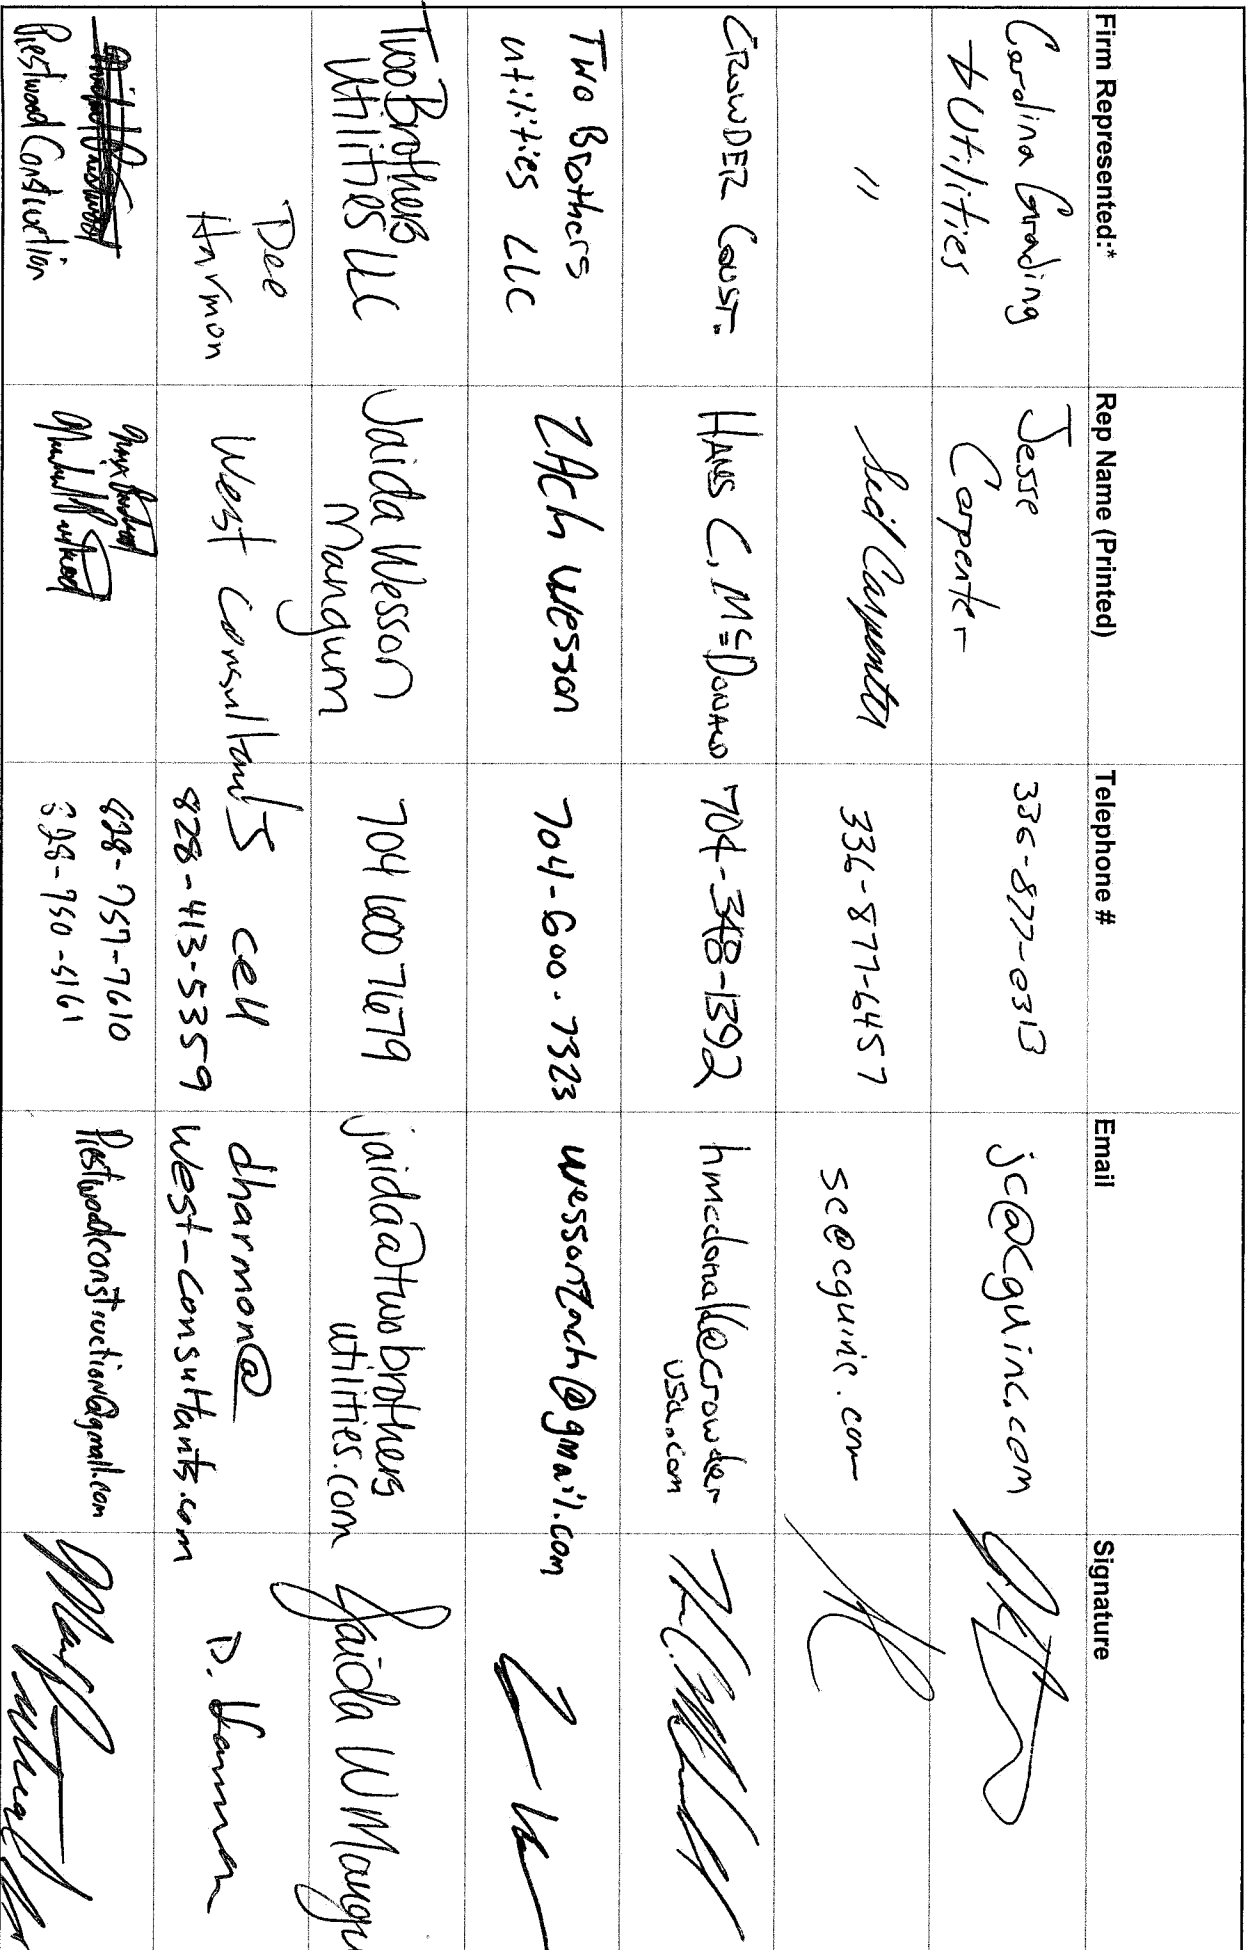 Firm Represented:* Rep Name (Printed) Telephone # Email Signature
Carolina Grading
+ Utilities
Jesse
Carpenter
336-877-0313
jc@cguinc.com
"
Carpenter
336-877-6457
sc@cguinc.com
CROWDER CONST.
HANS C. McDONALD
704-348-1392
hmcdonald@crowder
usa.com
Two Brothers
utilities LLC
ZAch Wesson
704-600-7323
wessonzach@gmail.com
Two Brothers
Utilities LLC
Jaida Wesson
Mangum
704 600 7679
jaida@twobrothers
utilities.com
Jaida W Mangu
Dee
Harmon
West Consultants
cell
828-413-5359
dharmon@
west-consultants.com
D. Harmon
Prestwood Construction
828-757-7610
828-750-5161
Prestwoodconstruction@gmail.com